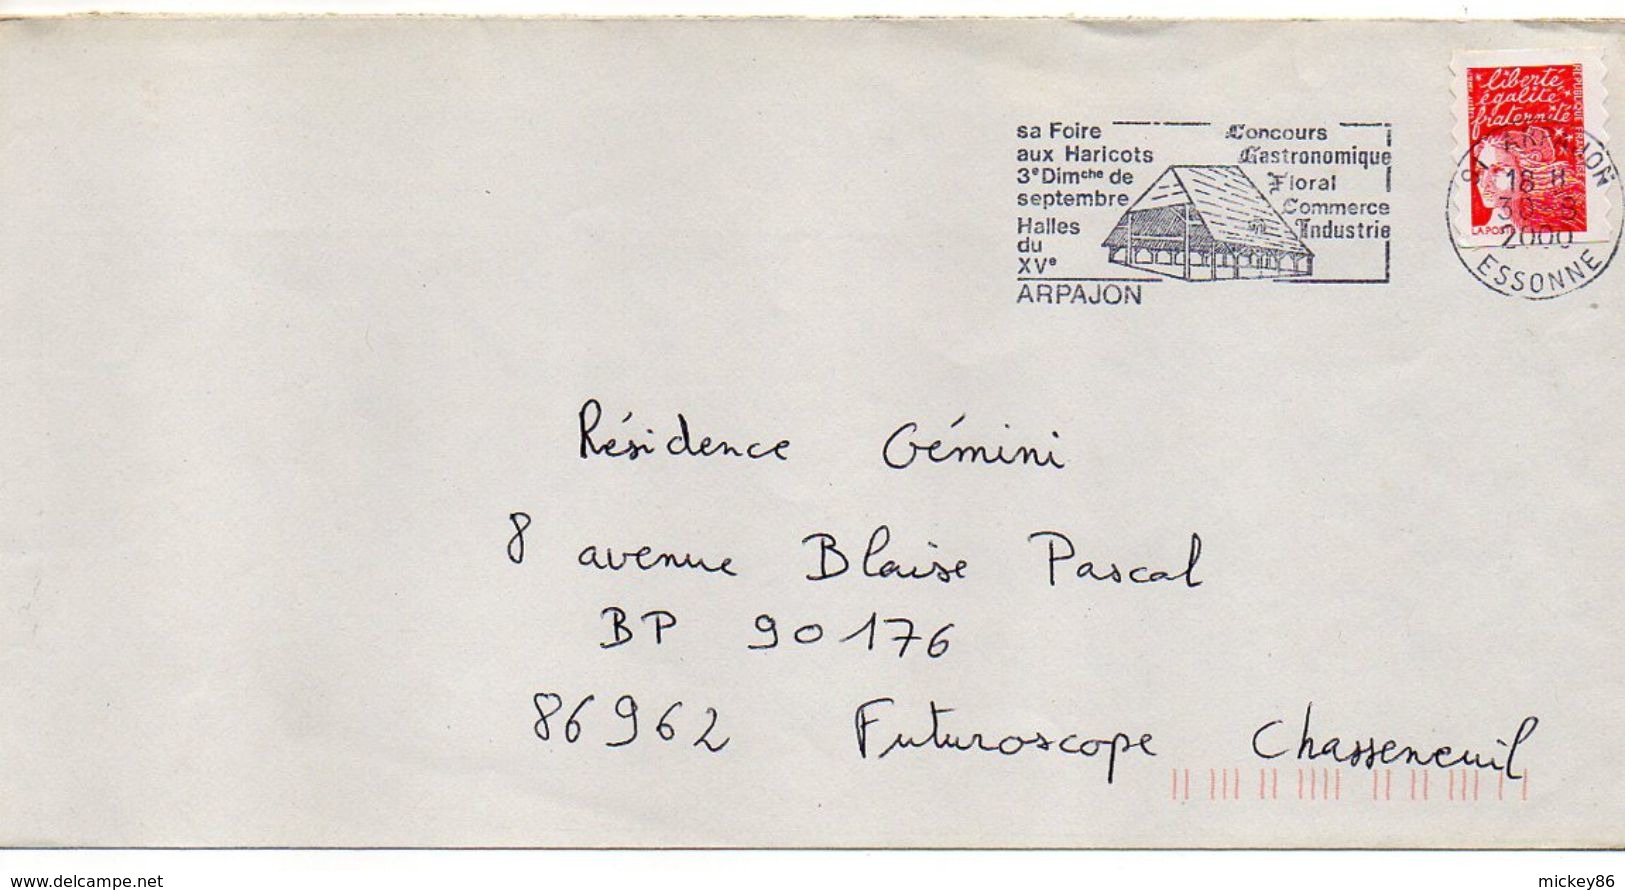 sa Foire
aux Haricots
3e Dimche de
septembre
Halles
du
XVe
ARPAJON
Concours
Gastronomique
Floral
Commerce
Industrie
liberté
égalité
fraternité
RÉPUBLIQUE FRANÇAISE
LA POSTE
91 ARPAJON
18 H
2000
ESSONNE
Résidence Gémini
8 avenue Blaise Pascal
BP 90176
86962 Futuroscope Chasseneuil
www.delcampe.net
mickey86